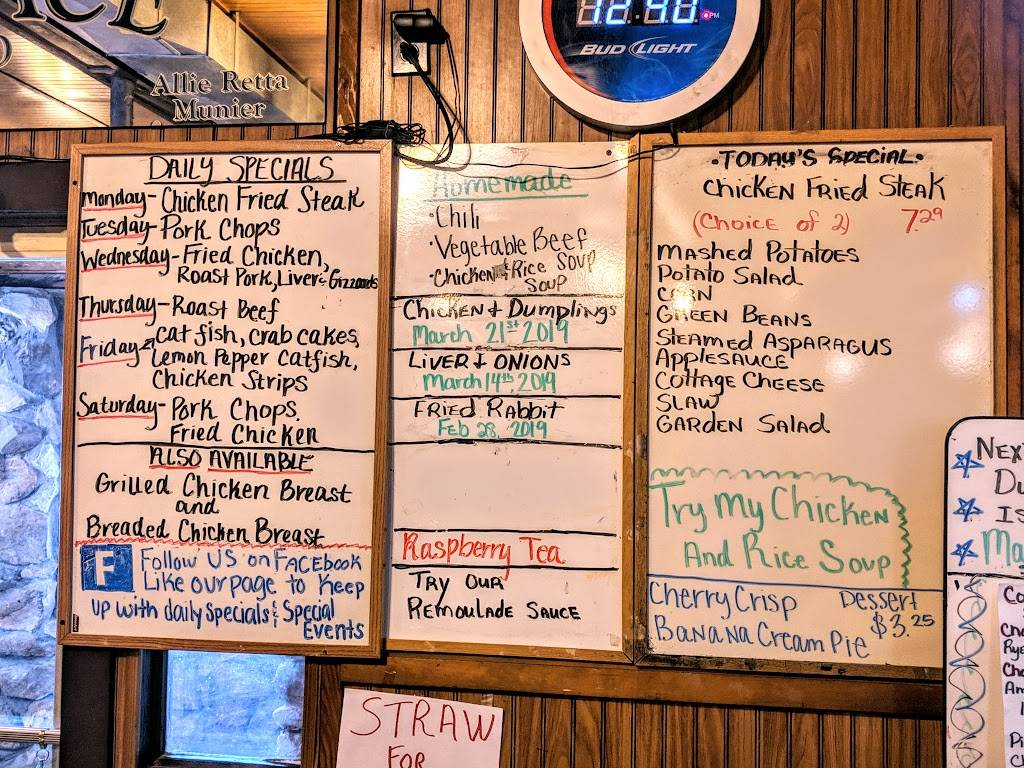 ICE
Allie Retta
Munier
12:40 PM
BUD LIGHT
DAILY SPECIALS
Monday - Chicken Fried Steak
Tuesday - Pork Chops
Wednesday - Fried Chicken,
Roast Pork, Liver & Gizzards
Thursday - Roast Beef
Friday - Cat fish, crab cakes,
Lemon Pepper Catfish,
Chicken Strips
Saturday - Pork Chops.
Fried Chicken
ALSO AVAILABLE
Grilled Chicken Breast
and
Breaded Chicken Breast
F Follow US on FACEbook
Like our page to Keep
up with daily specials & Special
Events
Homemade
• Chili
• Vegetable Beef
• Chicken & Rice Soup
Soup
Chicken & Dumplings
March 21st 2019
LIVER & ONIONS
March 14th, 2019
FRIED Rabbit
Feb 28, 2019
Raspberry Tea
TRY OUR
REMOULADE SAUCE
• TODAY'S SPECIAL •
CHICKEN FRIED STEAK
(CHOICE OF 2) 7.29
MASHED POTATOES
POTATO SALAD
CORN
GREEN BEANS
STEAMED ASPARAGUS
APPLESAUCE
COTTAGE CHEESE
SLAW
GARDEN SALAD
Try My Chicken
And Rice Soup
Cherry Crisp Dessert
Banana Cream Pie $3.25
STRAW
FOR
Nex
Du
Is
Ma
Co
Che
Rye
Cho
Am
Pi
Ch